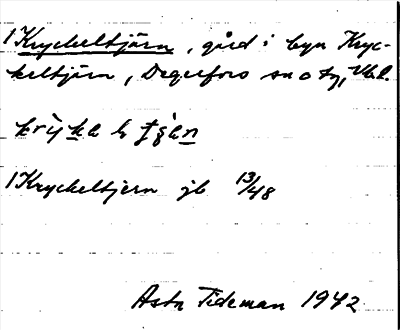 1 Kryckeltjärn, gård i byn Kryc-
keltjärn, Degerfors sn o tg, Vbl.
1 Kryckeltjern jb 13/48
Asta Tideman 1942